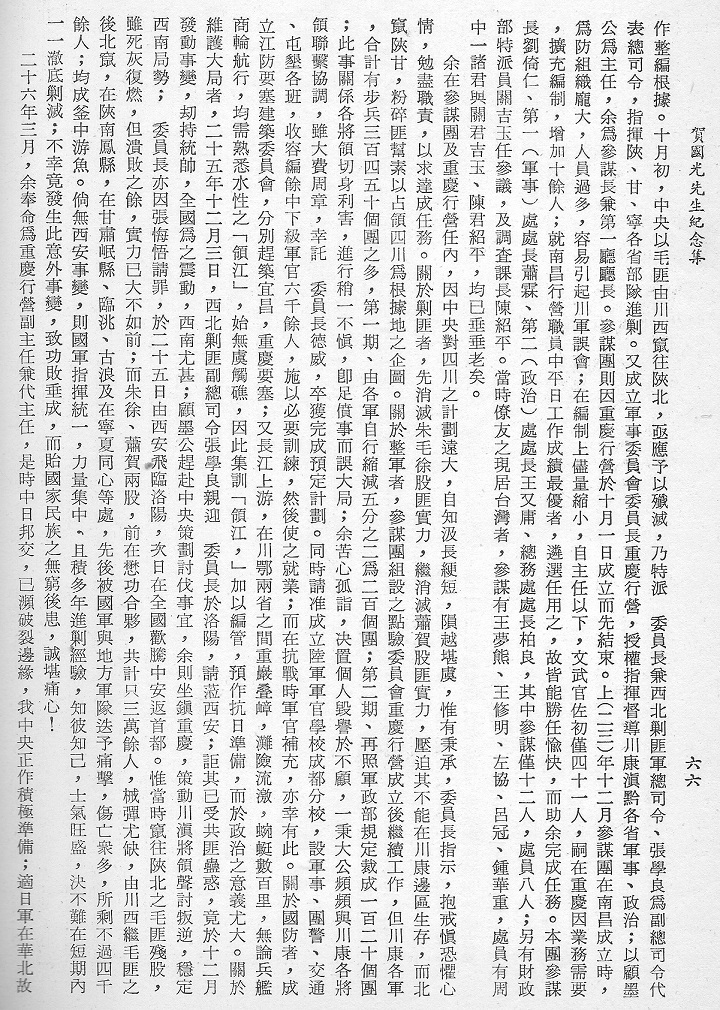 賀國光先生紀念集
六六
作整編根據。十月初，中央以毛匪由川西竄往陝北，亟應予以殲滅，乃特派　委員長兼西北剿匪軍總司令、張學良為副總司令代
表總司令，指揮陝、甘、寧各省部隊進剿。又成立軍事委員會委員長重慶行營，授權指揮督導川康滇黔各省軍事、政治；以顧墨
公為主任，余為參謀長兼第一廳廳長。參謀團則因重慶行營於十月一日成立而先結束。上（二三）年十二月參謀團在南昌成立時，
為防組織龐大，人員過多，容易引起川軍誤會；在編制上儘量縮小，自主任以下，文武官佐初僅四十一人，嗣在重慶因業務需要
，擴充編制，增加十餘人；就南昌行營職員中平日工作成績最優者，遴選任用之，故皆能勝任愉快，而助余完成任務。本團參謀
長劉倚仁、第一（軍事）處處長蕭霖、第二（政治）處處長王又庸、總務處處長柏良，其中參謀僅十二人，處員八人；另有財政
部特派員關吉玉任參議，及調查課長陳紹平。當時僚友之現居台灣者，參謀有王夢熊、王修明、左協、呂冠、鍾華重，處員有周
中一諸君與關君吉玉、陳君紹平，均已垂垂老矣。
余在參謀團及重慶行營任內，因中央對四川之計劃遠大，自知汲長綆短，隕越堪虞，惟有秉承，委員長指示，抱戒愼恐懼心
情，勉盡職責，以求達成任務。關於剿匪者，先消滅朱毛徐股匪實力，繼消滅蕭賀股匪實力，壓迫其不能在川康邊區生存，而北
竄陝甘，粉碎匪幫素以占領四川為根據地之企圖。關於整軍者，參謀團組設之點驗委員會重慶行營成立後繼續工作，但川康各軍
，合計有步兵三百四五十個團之多，第一期、由各軍自行縮減五分之二為二百個團；第二期、再照軍政部規定裁成一百二十個團
；此事關係各將領切身利害，進行稍一不愼，卽足僨事而誤大局；余苦心孤詣，決置個人毀譽於不顧，一秉大公頻頻與川康各將
領聯繫協調，雖大費周章，幸託　委員長德威，卒獲完成預定計劃。同時請准成立陸軍軍官學校成都分校，設軍事、團警、交通
、屯墾各班，收容編餘中下級軍官六千餘人，施以必要訓練，然後使之就業；而在抗戰時軍官補充，亦幸有此。關於國防者，成
立江防要塞建築委員會，分別趕築宜昌，重慶要塞；又長江上游，在川鄂兩省之間重巖疊嶂，灘險流激，蜿蜒數百里，無論兵艦
商輪航行，均需熟悉水性之「領江」，始無虞觸礁，因此集訓「領江，」加以編管，預作抗日準備，而於政治之意義尤大。關於
維護大局者，二十五年十二月三日，西北剿匪副總司令張學良親迎　委員長於洛陽，請蒞西安；詎其已受共匪蠱惑，竟於十二月
發動事變，刧持統帥，全國為之震動，西南尤甚；顧墨公趕赴中央策劃討伐事宜，余則坐鎭重慶，策動川滇將領聲討叛逆，穩定
西南局勢；　委員長亦因張悔悟請罪，於二十五日由西安飛臨洛陽，次日在全國歡騰中安返首都。惟當時竄往陝北之毛匪殘股，
雖死灰復燃，但潰敗之餘，實力已大不如前；而朱徐、蕭賀兩股，前在懋功合夥，共計只三萬餘人，械彈尤缺，由川西繼毛匪之
後北竄，在陝南鳳縣，在甘肅岷縣、臨洮、古浪及在寧夏同心等處，先後被國軍與地方軍隊迭予痛擊，傷亡衆多，所剩不過四千
餘人；均成釜中游魚。倘無西安事變，則國軍指揮統一，力量集中、且積多年進剿經驗，知彼知己，士氣旺盛，決不難在短期內
一一澈底剿滅；不幸竟發生此意外事變，致功敗垂成，而貽國家民族之無窮後患，誠堪痛心！
二十六年三月，余奉命為重慶行營副主任兼代主任，是時中日邦交，已瀕破裂邊緣，我中央正作積極準備；適日軍在華北故